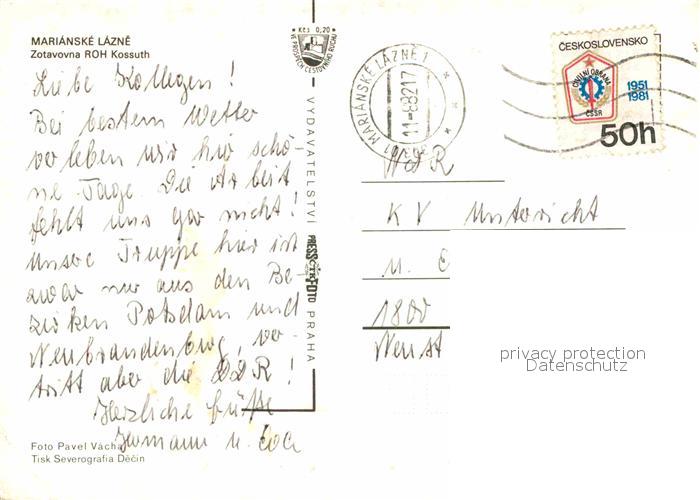 MARIÁNSKÉ LÁZNĚ
Zotavovna ROH Kossuth
Liebe Kollegen!
Bei bestem Wetter
verleben wir hier schö-
ne Tage. Die Arbeit
fehlt uns gar nicht!
Unsre Truppe hier ist
zwar nur aus den Be-
zirken Potsdam und
Neubrandenburg, ver-
tritt aber die DDR!
Herzliche Grüße
Hermann u. Eva
Foto Pavel Vácha
Tisk Severografia Děčín
Kčs 0,20
VE PROSPĚCH CESTOVNÍHO RUCHU
VYDAVATELSTVÍ
PRESSFOTO
PRAHA
MARIÁNSKÉ LÁZNĚ 1
ČESKOSLOVENSKO
CIVILNÍ OBRANA
ČSSR
1951
1981
50h
KV Unterricht
u. E
1800
Neust
privacy protection
Datenschutz